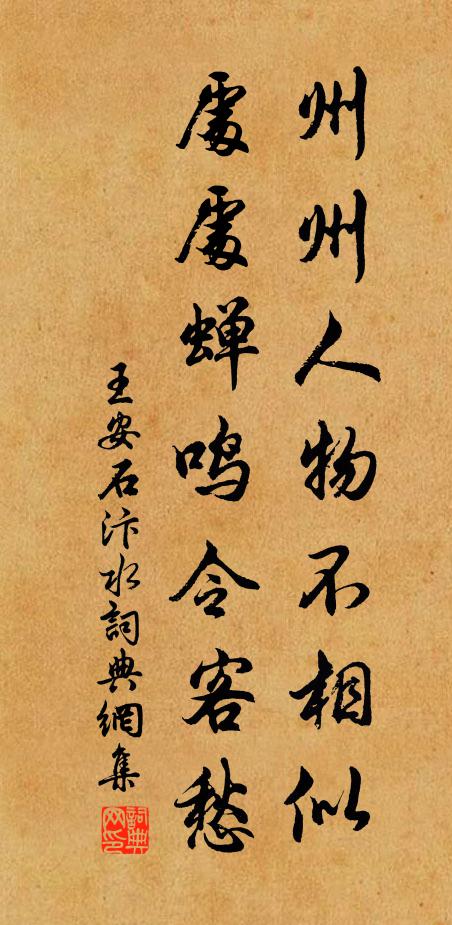 州州人物不相似
處處蟬鳴令客愁
王安石汴水詞典網集
詞典网印